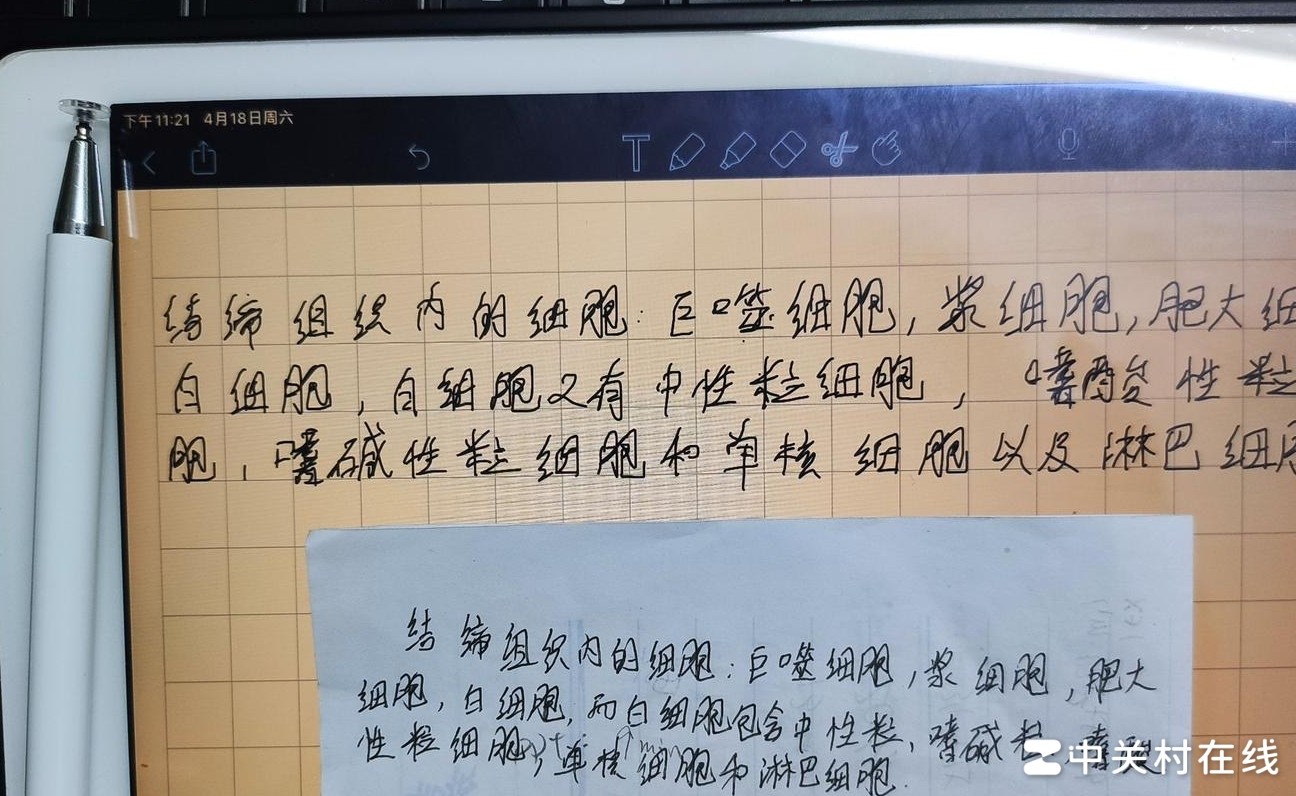 下午11:21 4月18日周六
T
结缔组织内的细胞:巨噬细胞,浆细胞,肥大细
白细胞,白细胞又有中性粒细胞,嗜酸性粒
胞,嗜碱性粒细胞和单核细胞以及淋巴细胞
结缔组织内的细胞:巨噬细胞,浆细胞,肥大
细胞,白细胞,而白细胞包含中性粒,嗜碱粒,嗜
性粒细胞,单核细胞和淋巴细胞.
中关村在线